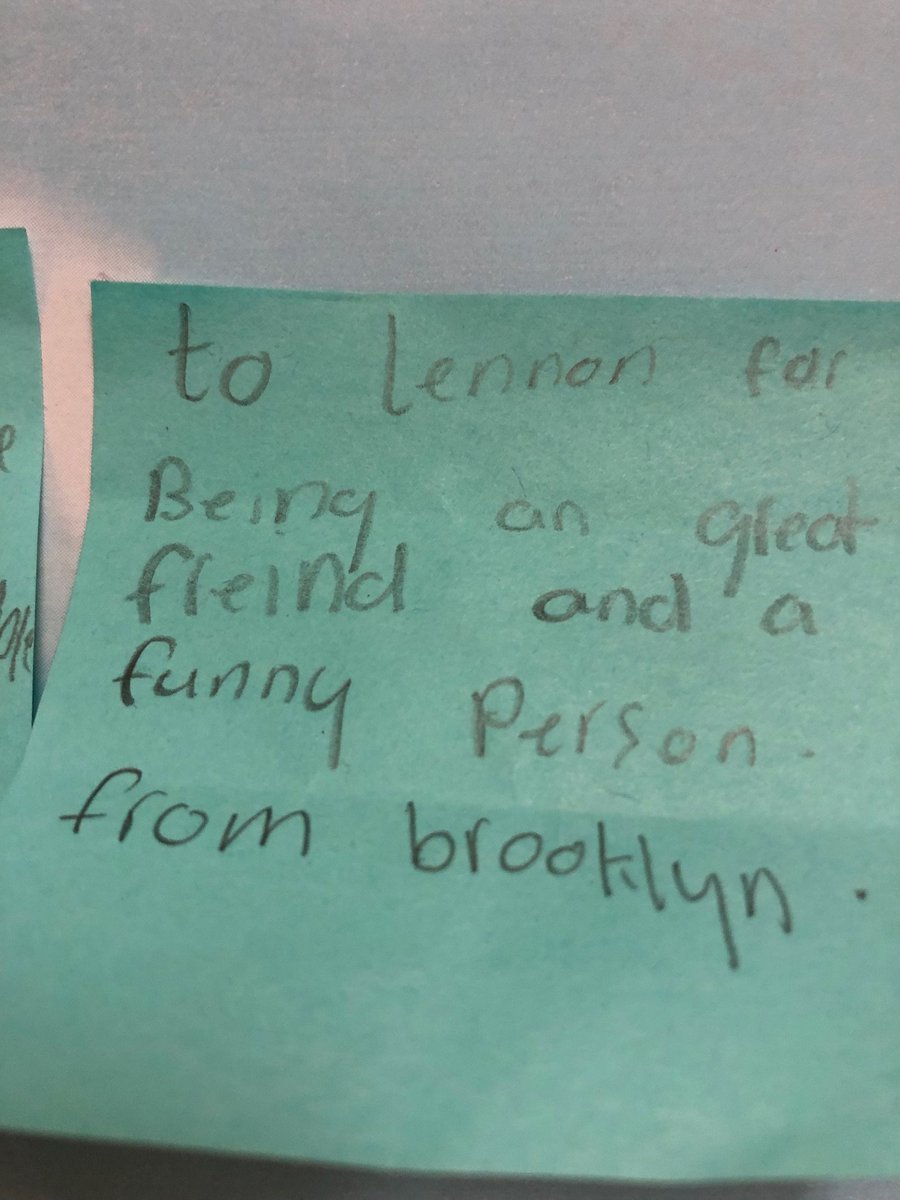 to lennon for
Being an great
freind and a
funny Person.
from brooklyn.